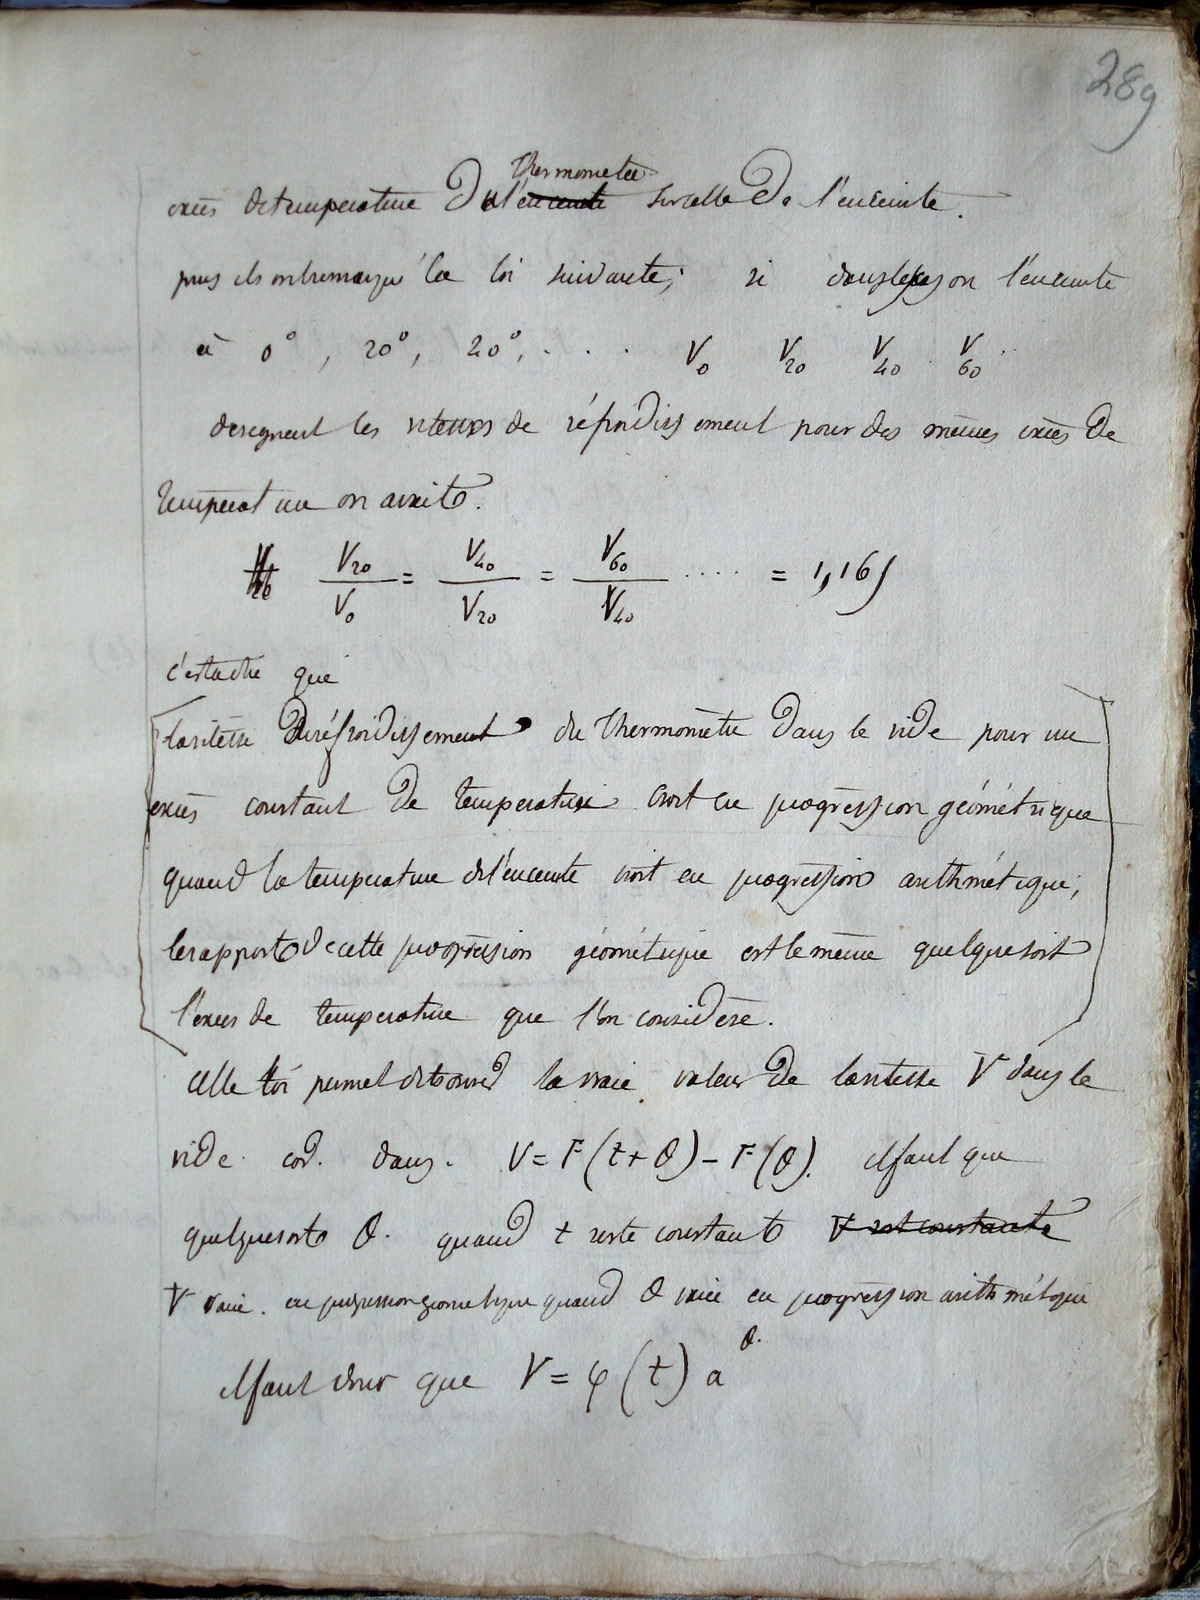 289
thermometre
excès de temperature de l'enceinte sur celle de l'enceinte.
puis ils ont remarqué la loi suivante; si dans l'on l'enceinte
à 0°, 20°, 40°, . . . V0 V20 V40 V60 ..
designent les vitesses de réfroidissement pour des mêmes excès de
temperature on avait.
V20/V0 = V40/V20 = V60/V40 .... = 1,165
c'est a dire que
la vitesse du réfroidissement du thermomètre dans le vide pour un
excès constant de temperature croit en progression géométrique
quand la temperature de l'enceinte croit en progression arithmétique;
le rapport de cette progression géométrique est le même quelque soit
l'excès de temperature que l'on considère.
Cette loi permet de trouver la vraie valeur de la vitesse V dans le
vide. dans. V = F(t+θ) - F(θ). il faut que
quelque soit θ. quand t reste constant V est constante
V varie. en progression geometrique quand θ varie en progression arithmétique
il faut donc que V = φ(t) a^θ.